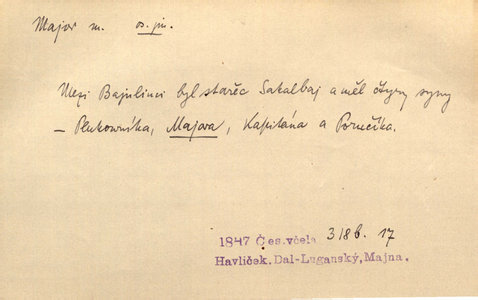 Major m. os. jm.
Mezi Bajulinci byl stařec Sakalbaj a měl čtyry syny
– Plukovníka, Majora, Kapitána a Poručíka.
1847 Čes. včela 318 b. 17
Havlíček. Dal-Luganský, Majna.